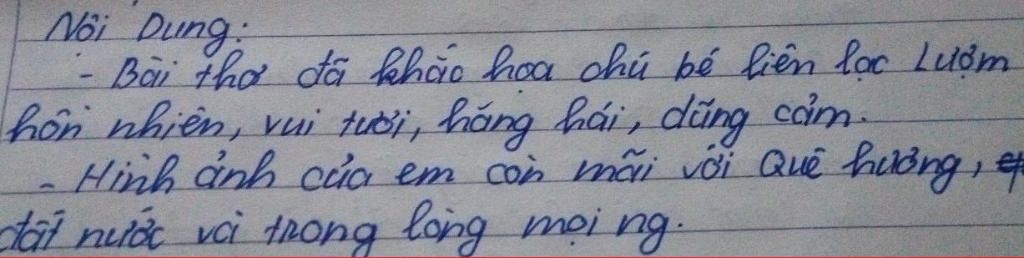 Nôi Dung:
- Bài thơ đã khắc họa chú bé liên lạc Lượm
hồn nhiên, vui tươi, hăng hái, dũng cảm.
- Hình ảnh của em còn mãi với Quê hương,
đất nước và trong lòng mọi ng.